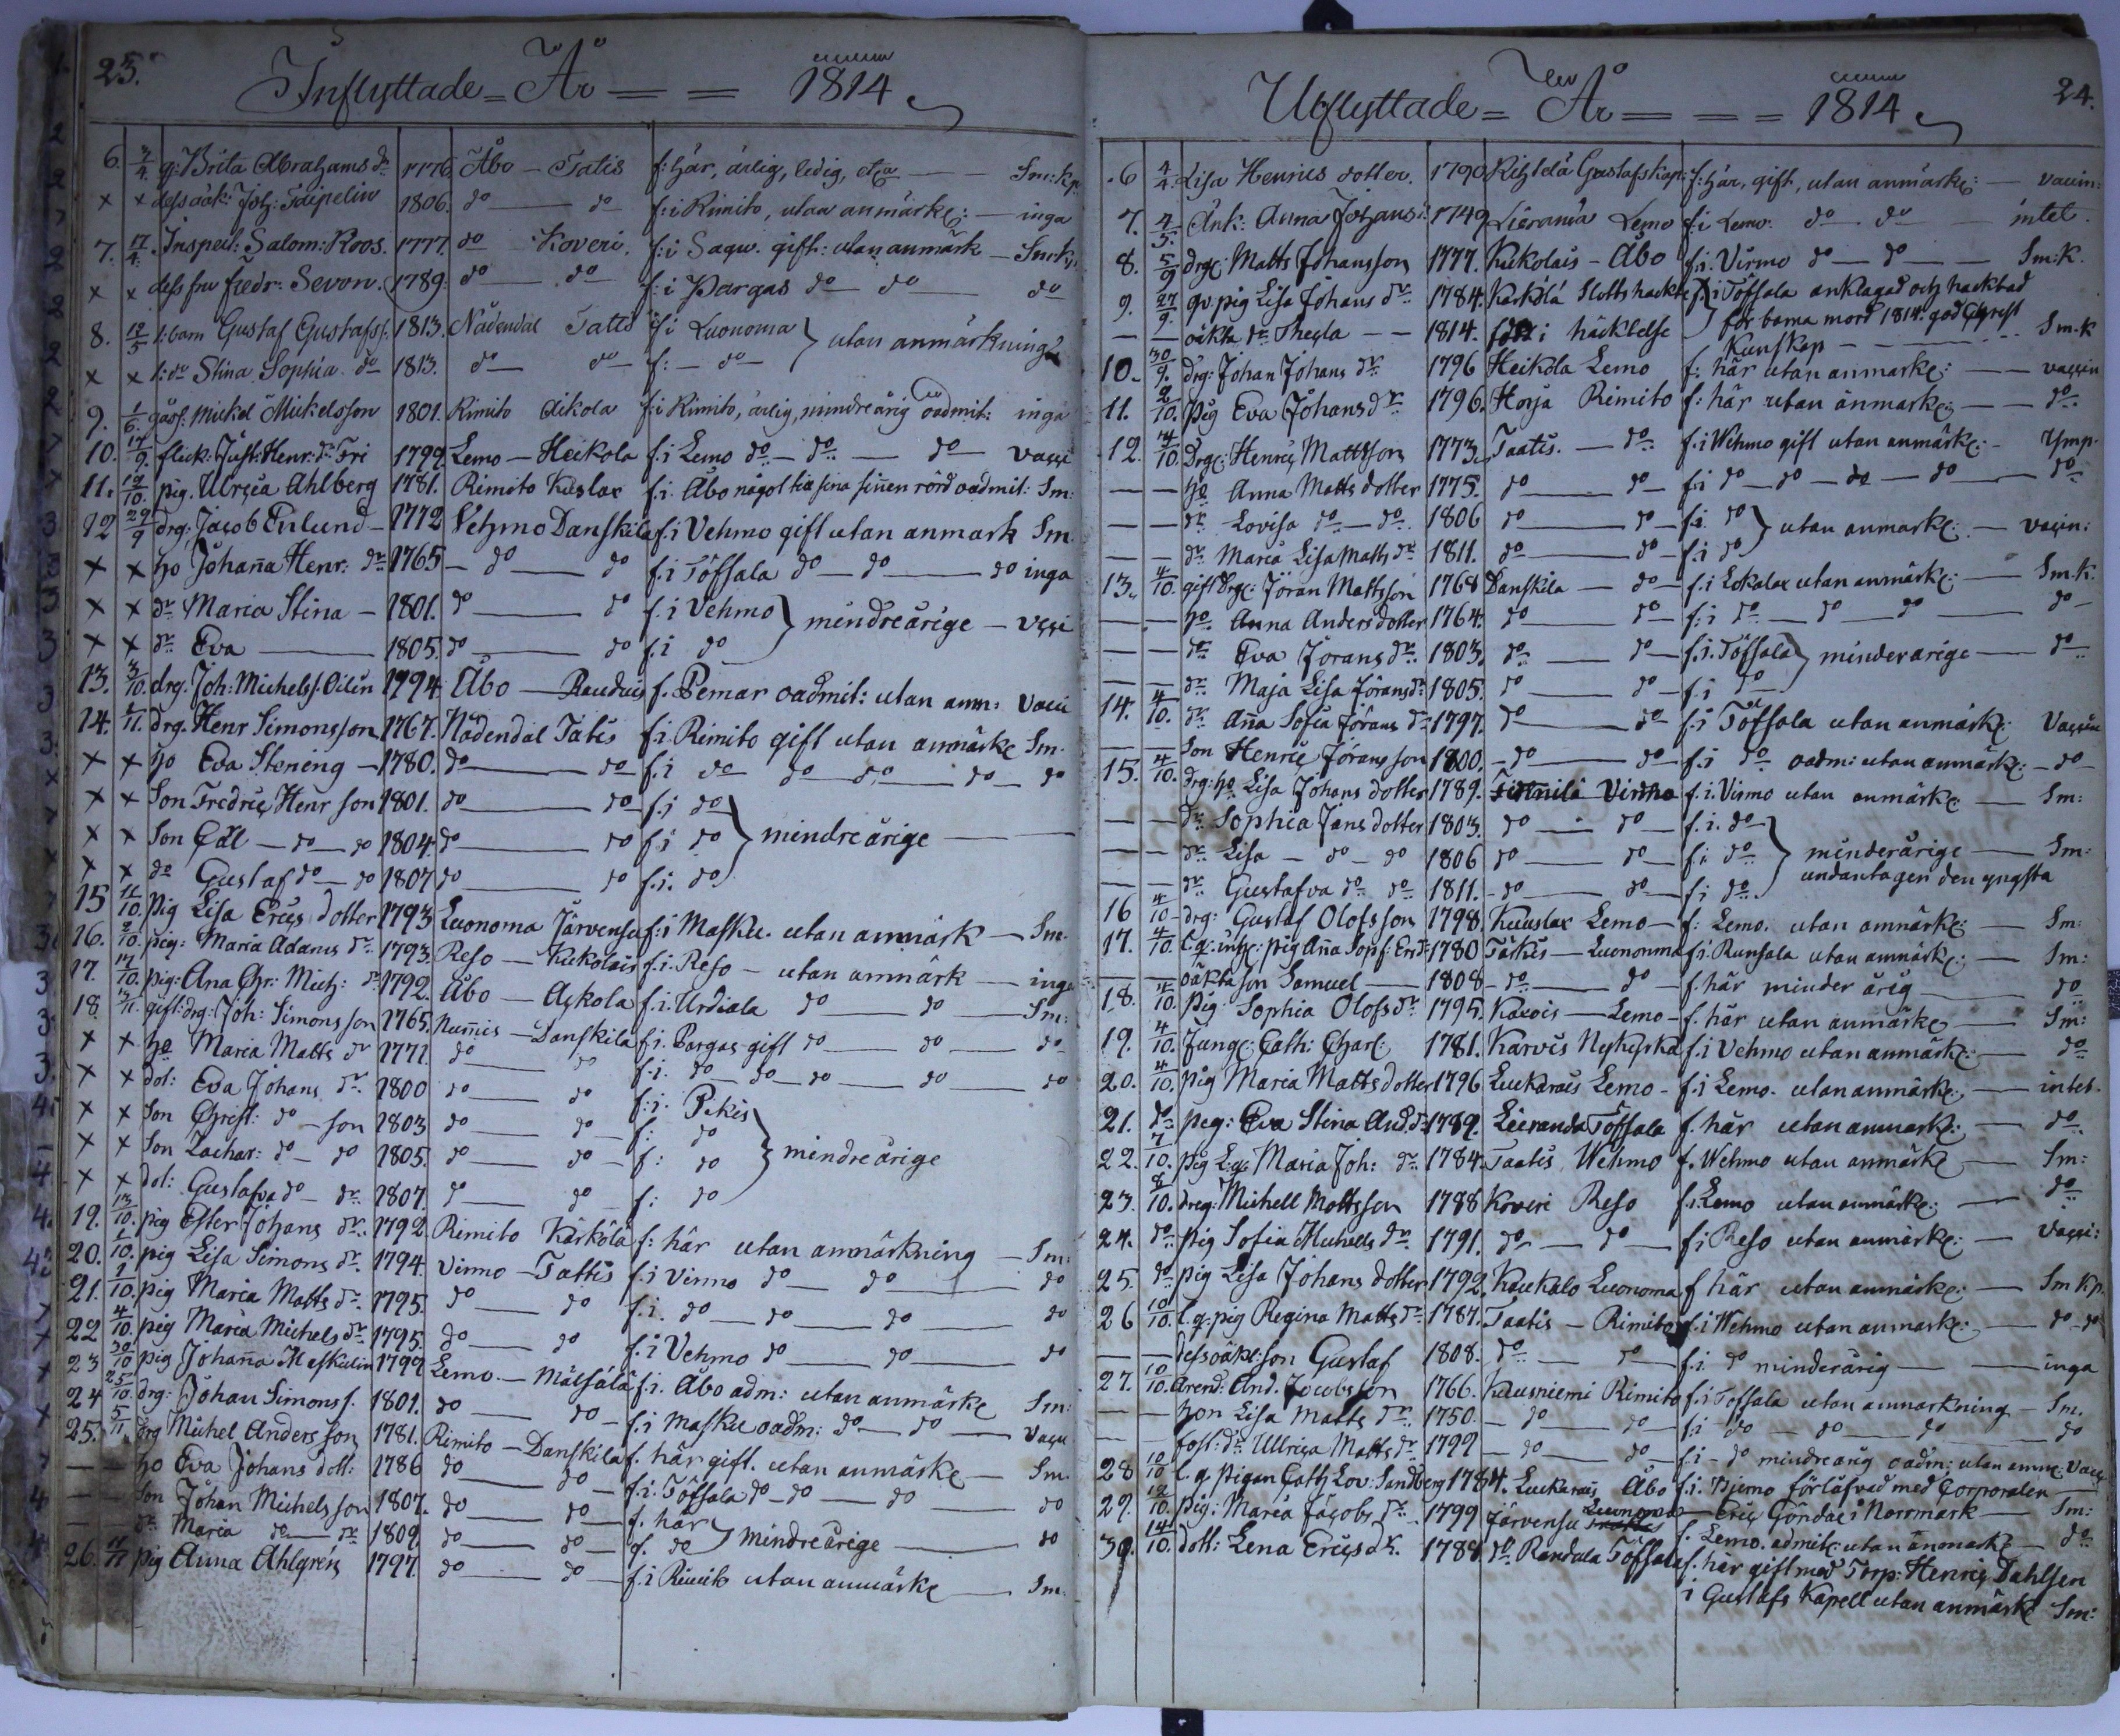 23.
Inflyttade = År = = 1814
6. 3/4. q: Brita Abrahams dr 1776 Åbo - Tatis f: här, ärlig, ledig, etca Sm: kp
x x dess oäk: Joh: Idepelin 1806. do do f: i Rimito, utan anmärkg: inga
7. 17/4. Inspect: Salom: Roos. 1777. do Koveri. f: i Sagu. gift: utan anmärk Sm: k:
x x dess fru fredr: Sevon. 1789. do do f: i Pargas do do do
8. 12/5 s: barn Gustaf Gustafss: 1813. Nådendal Tatis f: i Luonoma } utan anmärkning
x x s: do Stina Sophia. do 1813. do do f: do
9. 1/6. gåss: Mickel Mickelsson 1801. Rimito Aikola f: i Rimito, ärlig, mindreårig oadmit: inga
10. 17/9. flick: Just: Henr: dr Fri 1799 Lemo - Heikola f. i Lemo do do do vacci
11. 19/10. pig. Ulrica Ahlberg 1781. Rimito Kuslax f. i. Åbo något til sina sinnen rörd oadmit: Sm:
12 29/9 drg: Jacob Enlund 1772 Vehmo Danskila f. i Vehmo gift utan anmärk Sm.
x x ho Johanna Henr: dr 1765 do do f. i Töfsala do do do inga
x x dr Maria Stina 1801. do do f. i Vehmo } mindreårige vcci
x x dr Eva 1805. do do f. i do
13. 3/10. drg. Joh: Michelss: Oilin 1794 Åbo - Rauduis f. Pemar oadmit: utan anm: vacci
14. 1/11. drg. Henr Simonsson 1767. Nådendal Tatis f. i. Rimito gift utan anmärkg Sm.
x x ho Eva Stening 1780. do do f. i do do do do do
x x Son Fredric Henr son 1801. do do f. i do } mindreårige
x x Son Cal do do 1804. do do f. i do
x x do Gustaf do do 1807 do do f. i. do
15 11/10. pig Lisa Erics dotter 1793 Luonoma Järvensu f: i Masku. utan anmärk Sm.
16. 2/10. pig: Maria Adams dr 1793. Reso - Kukolais f. i. Reso - utan anmärk inga
17. 17/10. pig: Ana Chr: Mich: dr 1792. Åbo - Ackola f. i. Urdiala do do Sm:
18. 3/11. gift: drg: Joh: Simonsson 1765. Numis - Danskila f. i. Pargas gift do do do
x x ho Maria Matts dr 1771. do do f. i. do do do do do
x x dot: Eva Johans dr 1800 do do f: i. Pikis
x x Son Christ: do son 1803 do do f: do } mindreårige
x x Son Zachar: do do 1805. do do f: do
x x dot: Gustafva do dr 1807. do do f: do
19. 13/10. pig Ester Johans dr 1792. Rimito Kärkölä f: här utan anmärkning Sm:
20. 1/10. pig Lisa Simons dr 1794. Virmo - Tattis f. i Virmo do do do
21. 1/10. pig Maria Matts dr 1795. do do f. i. do do do do
22 4/10. pig Maria Michels dr 1795. do do f. i Vehmo do do do
23 30/10 pig Johanna Maskulin 1799 Lemo - Mälsälä f. i. Åbo adm: utan anmärkg Sm:
24 25/10. drg: Johan Simonss. 1801. do do f. i Masku oadm: do do vacci
25. 5/11. drg Michel Andersson 1781. Rimito - Danskila f. här gift. utan anmärkg Sm.
ho Eva Johans dott: 1786 do do f. i. Töfsala do do do do
Son Johan Michelsson 1807. do do f. här } mindreårige do
dr Maria do dr 1809. do do f. do
26. 11/11 pig Anna Ahlgren 1797. do do f. i Rimito utan anmärkg Sm.
24.
Utflyttade = År = = = 1814
6 4/4. Lisa Henrics dotter. 1790 Kihtelä Gustafskap: f: här, gift, utan anmärkg: vaccin:
7. 4/5. Änk: Anna Johans: 1749 Lieranda Lemo f: i Lemo. do do intet.
8. 5/9 drg: Matts Johansson 1777. Kukolais - Åbo f. i. Virmo do do Sm: K.
9. 27/9. qv. pig Lisa Johans dr 1784. Kärkölä Slotts häckte f: i Töfsala anklagad och häcktad
oäkta dr Thecla 1814. född i häcktelse för barna mord 1814. god Christ
Kunskap Sm. k
10. 30/9. drg: Johan Johans dr 1796 Heikola Lemo f: här utan anmärkg: vaccin
11. 2/10. pig Eva Johans dr 1796. Horja Rimito f: här utan anmärkg: do
12. 4/10. Drg: Henric Mattsson 1773. Taatis. do f. i Wehmo gift utan anmärkg: Ymp.
ho Anna Matts dotter 1775. do do f: i do do do do do
dr Lovisa do do 1806 do do f. i. do } utan anmärkg: vaccin:
dr Maria Lisa Matts dr 1811. do do f: i do
13. 4/10. gift Drg: Jöran Mattsson 1768 Danskila do f. i Lokalax utan anmärkg: Sm. k:
ho Anna Anders dotter 1764. do do f: i do do do do
dr Eva Jorans dr 1803. do do f. i. Töfsala } minderårige do
dr Maja Lisa Jörans dr 1805. do do f. i do
14. 4/10. dr Anna Sofia Jörans dr 1797. do do f. i Töfsala utan anmärkg: Vaccin
Son Henric Jöransson 1800. do do f. i do oadm: utan anmärkg: do
15. 4/10. drg: ho Lisa Johans dotter 1789. Virmo f. i. Virmo utan anmärkg: Sm:
dr Sophia Jans dotter 1803. do do f. i. do
dr Lisa do do 1806 do do f. i do } minderårige Sm:
dr Gustafva do do 1811. do do f: i do undantagen den yngsta
16 4/10 drg: Gustaf Olofsson 1798. Kuuslax Lemo f: Lemo. utan anmärkg: Sm:
17. 4/10. pig Anna Soph: Eric dr 1780 Tärkis - Luonoma f. i Runsala utan anmärkg: Sm:
oäkta son Samuel 1808 do do f. här minder årig do
18. 4/10. Pig Sophia Olofs dr 1795. Kaxois - Lemo f. här utan anmärkg Sm:
19. 4/10. Jungf: Cath: Charl: 1781. Karvis Nykyrka f. i Vehmo utan anmärkg: do
20. 4/10. pig Maria Matts dotter 1796 Luckarais Lemo f. i Lemo. utan anmärkg: intet.
21. do pig: Eva Stina And. dr 1789. Lieranda Töfsala f. här utan anmärkg: do
22. 7/10. pig L: q: Maria Joh: dr 1784. Taatis Wehmo f. Wehmo utan anmärkg Sm:
23. 8/10. dreg: Michell Mattsson 1788 Koveri Reso f. i. Lemo utan anmärkg: do
24. do pig Sofia Michells dr 1791. do do f. i Reso utan anmärkg: Vacci:
25. do pig Lisa Johans dotter 1792 Kaukalo Luonoma f här utan anmärkg: Sm Kp.
26 10/10. l. q. pig Regina Matts dr 1787. Taatis - Rimito f. i Wehmo utan anmärkg: do do
dess oäkt: son Gustaf 1808. do do f. i. do minderårig inga
27. 10/10. Arend: And. Jacobsson 1766. Kuusniemi Rimito f. i Töfsala utan anmärkning Sm.
hon Lisa Matts dr 1750. do do f: i do do do do
fost: dr Ullrica Matts dr 1799 do do f. i do mindreårig oadm: utan anm: vacci
28 10/10 l. q. pigan Cath Lov: Sandberg 1784. Luckarais Åbo f. i. Bjerno förlåfvad med Corporalen
29. 12/10. pig: Maria Jacobs dr 1799 Järvensu Luonoma Eric Göndac i Norrmark Sm:
f: Lemo. admit: utan anmärkg do
30. 14/10. dott: Lena Erics dr 1788 do Randula Töfsala f. här gift med Torp: Henric Dahlsen
i Gustafs Kapell utan anmärkg Sm: